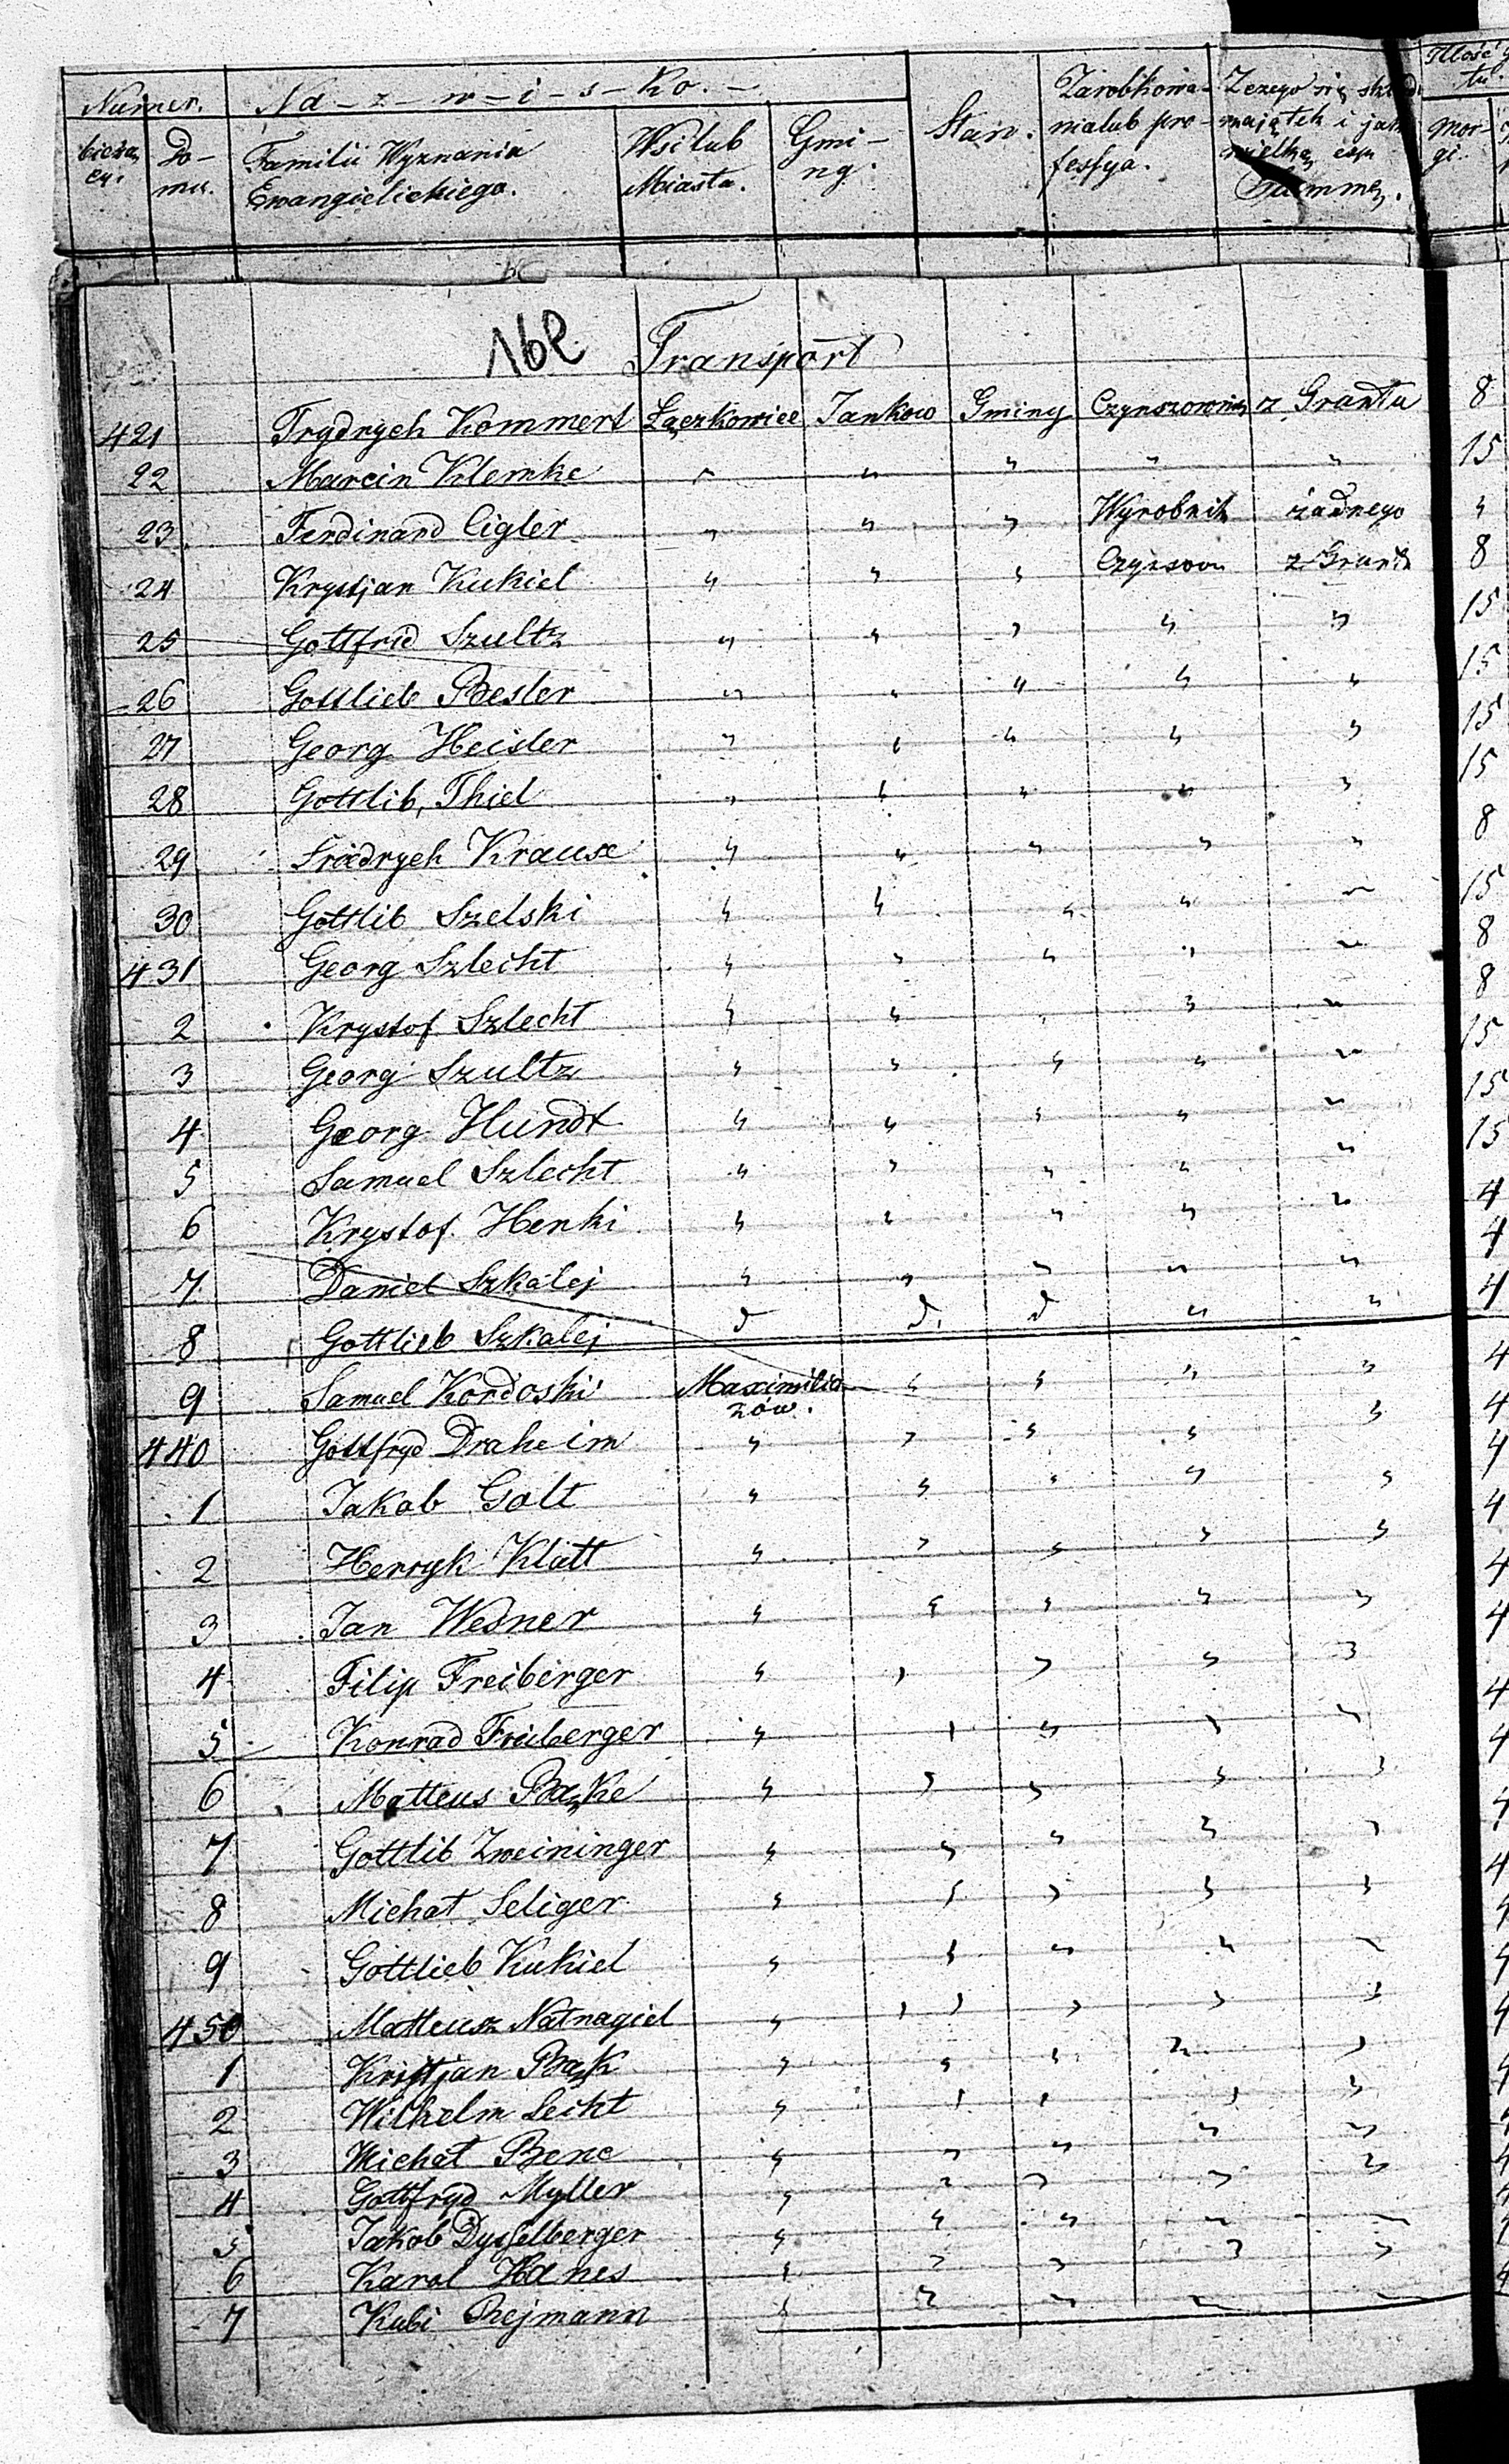 Numer. Na-z-w-i-s-ko.- Stan. Zarobkowa- Zczego się skład Ilość g
bieżą Do- Familii Wyznania Wsi lub Gmi- nia lub pro- majątek i jak tu.
cy. mu. Ewangielickiego. Miasta. ny. fessya. wielką Mor-
Summę. gi.
162 Transport
421 Frydrych Kommert Łączkowice Jankow Gminy Czynszownik z Grantu 8
22 Marcin Klemke " " " " " 15
23 Ferdinand Cigler " " " Wyrobnik żadnego "
24 Krystjan Kukiel " " " Czynsow z Grant 8
25 Gottfrid Szultz " " " " " 15
26 Gottlieb Besler " " " " " 15
27 Georg Heisler " " " " " 15
28 Gottlib Thiel " " " " " 15
29 Fridrych Krause " " " " " 8
30 Gottlib Szelski " " " " " 15
431 Georg Szlecht " " " " " 8
2 Krystof Szlecht " " " " " 8
3 Georg Szultz " " " " " 15
4 Georg Hundt " " " " " 15
5 Samuel Szlecht " " " " " 15
6 Krystof Henki " " " " " 4
7 Daniel Szkalej " " " " " 4
8 Gottlieb Szkalej d d. d " " 4
9 Samuel Kordoski Maximilia- " " " " 4
nów.
440 Gottfryd Draheim " " " " " 4
1 Jakob Golt " " " " " 4
2 Henryk Klatt " " " " " 4
3 Jan Wesner " " " " " 4
4 Filip Freiberger " " " " " 4
5 Konrad Freiberger " " " " " 4
6 Matteus Bąke " " " " " 4
7 Gottlib Zweininger " " " " " 4
8 Michał Seliger " " " " " 4
9 Gottlieb Kukiel " " " " " 4
450 Matteusz Natnagiel " " " " " 4
1 Kristjan Bąk " " " " " 4
2 Wilhelm Lecht " " " " " 4
3 Michał Bene " " " " "
4 Gottfryd Myller " " " " " 4
5 Jakob Dysselberger " " " " "
6 Karol Hanes " " " " " 4
7 Kubi Rejmann " " " " "